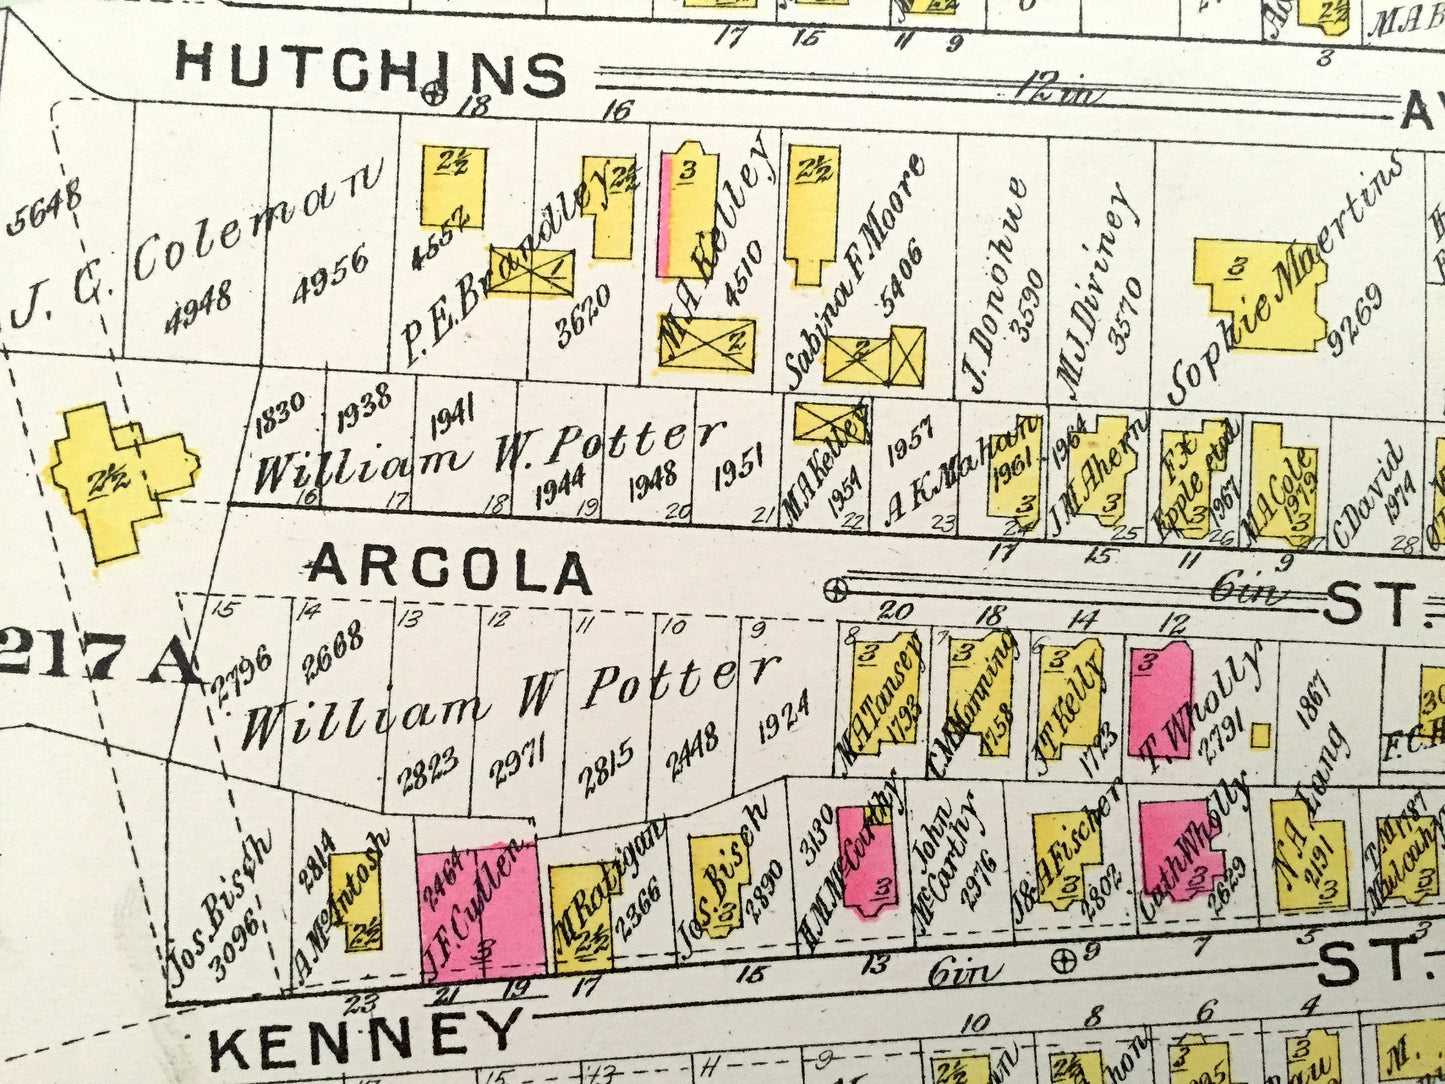 17 15 11 9
2½
3
HUTCHINS 12 in
18 16
5648
J. C. Coleman
4948
4956
2½
4552
P. E. Brandley
1
2½
3620
3
M A Kelley
4510
2
2½
Sabina F. Moore
5406
2
J. Donohue
3590
M J. Diviney
3570
3
Sophie Maertins
9269
2½
1830
1938
1941
William W. Potter
1944
1948
1951
16 17 18 19 20 21
M A Kelley
1954
22
1957
A K Mahan
23
1961
3
24
1964
J. M. Ahern
3
25
F X
Epple etad
1967
3
26
M A Cole
1979
3
27
C. David
1974
28
17 15 11 9
ARGOLA 6in ST.
217 A
15 14 13 12 11 10 9
2796
2668
William W Potter
2823
2971
2815
2448
1924
20
8
3
M A Tansey
1793
18
7
3
Manning
1758
14
6
3
J T Kelly
1723
12
3
T. Wholly
2791
1867
Lang
F. C. H
Jos. Bisch
3096
2814
A McIntosh
2½
2464
J F. Cullen
3
M Ratigan
2366
2½
Jos. Bisch
3
2890
3130
H. M. McCarthy
3
John
McCarthy
2976
J & A Fischer
3
2802
Cath Wholly
3
2629
N A
2191
1787
Mulcahy
3
23 21 19 17 15 13 9 7 5 3
KENNEY 6in ST.
10 8 6 4
15 13 11 9
2½
2½
3
3
M.